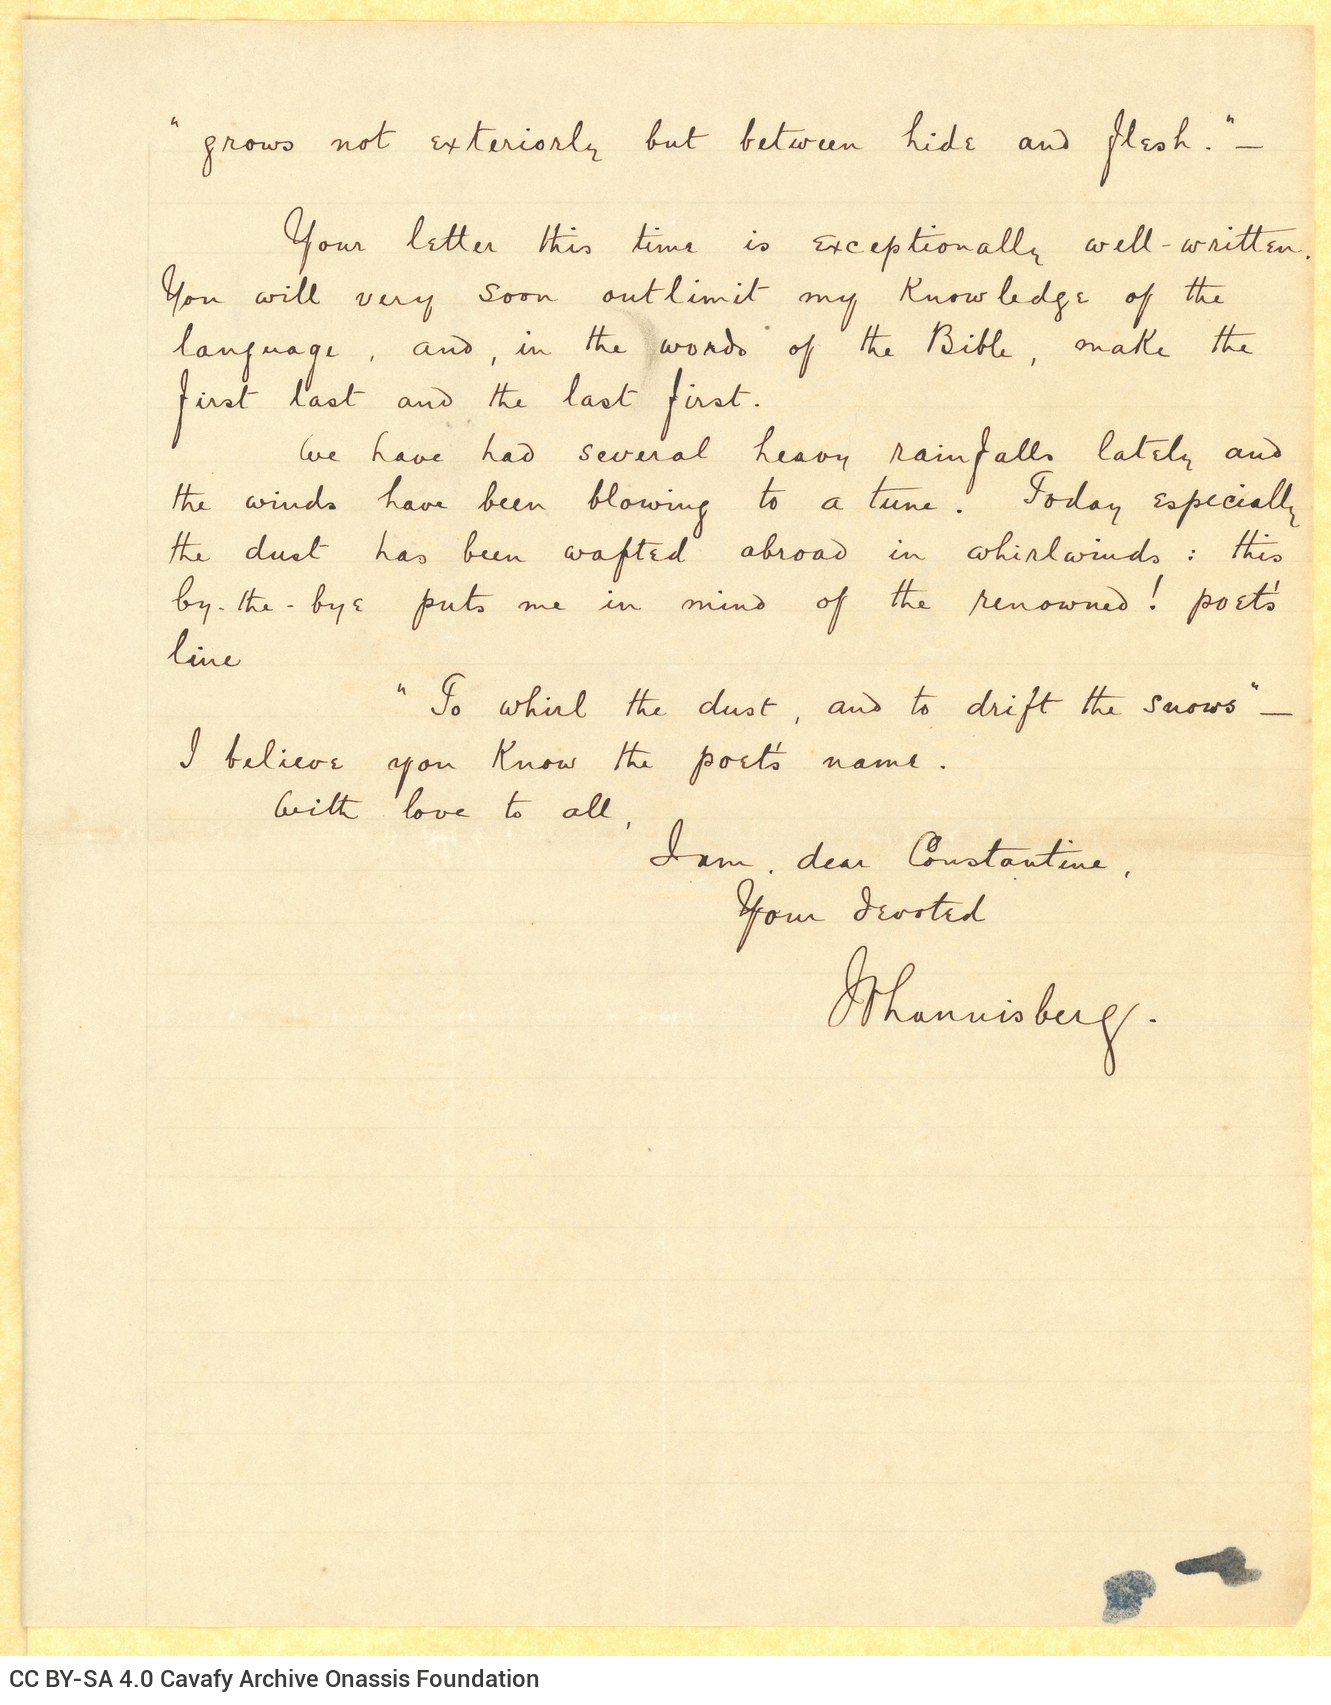 " grows not exteriorly but between hide and flesh." —
Your letter this time is exceptionally well-written.
You will very soon outlimit my knowledge of the
language, and, in the words of the Bible, make the
first last and the last first.
We have had several heavy rainfalls lately and
the winds have been blowing to a tune. Today especially
the dust has been wafted abroad in whirlwinds: this
by-the-bye puts me in mind of the renowned! poet's
line
" To whirl the dust, and to drift the snows" —
I believe you know the poet's name.
With love to all,
I am, dear Constantine,
Your devoted
Johannisberg.
CC BY-SA 4.0 Cavafy Archive Onassis Foundation